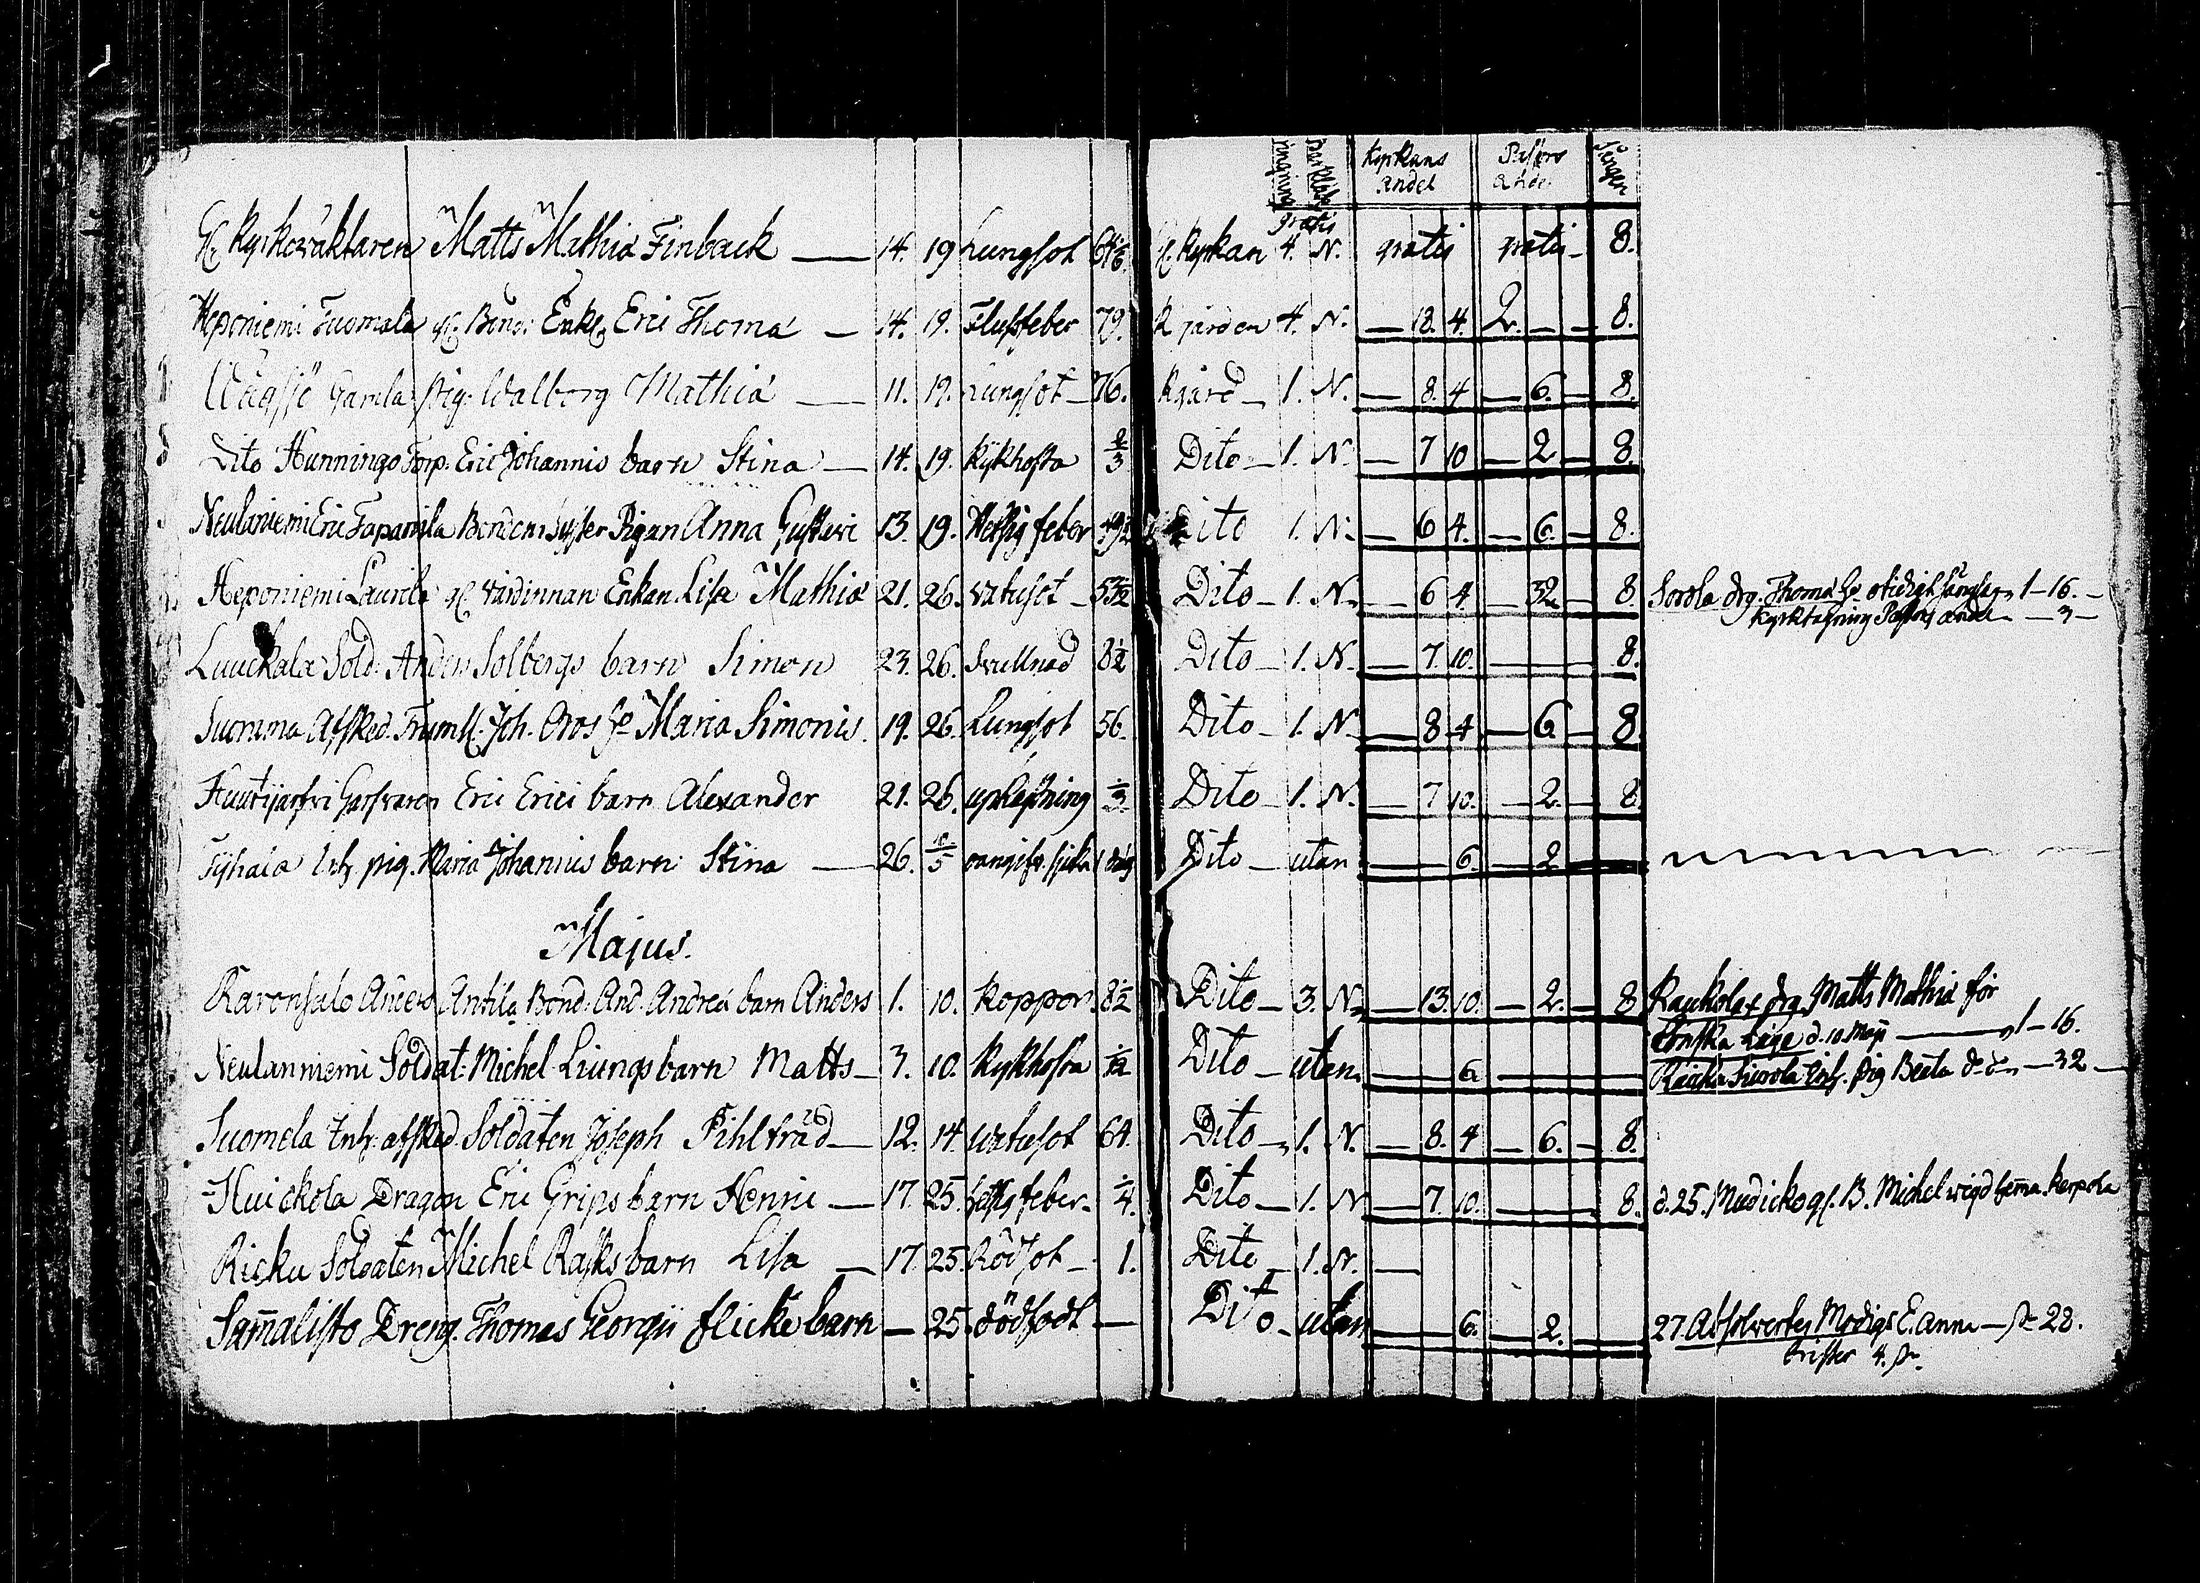 Kyrkans Andel Pastors Andel Sången
Gl. Kyrkoväktaren Matts Mathiæ Finback — 14. 19 Lungsot 64 gl. Kyrkan gratis 4. N. gratis gratis — 8.
Heponiemi Tuomala gl. Bond. Enkl. Eric Thomæ — 14. 19. Flussfeber 79. K gården 4. N. — 18. 4. 2. — — 8.
Gamla pig. Walborg Mathiæ — 11. 19. Lungsot — 76. Kgård — 1. N. — 8. 4 — 6. — 8.
Dito Hunningo Torp. Eric Johannis barn Stina — 14. 19. Kykhosta 2/3 Dito — 1. N. — 7 10 — 2 — 8.
Neulaniemi Eric Tapanila Bondens syster Pigan Anna Gustavi 13. 19. Hetsig feber Dito 1. N. — 6 4. — 6. — 8.
Heponiemi Laurila gl. värdinnan Enkan Lisa Mathiæ 21. 26. vatusot — 53 1/2 Dito — 1. N. — 6 4. — 32 — 8. Sorola drg. Thomæ 1—16. —
Kyrktagning Pastors andel — 3 —
Luuckala Sold. Anders Solbergs barn Simon 23. 26. Svullnad 8 1/2 Dito — 1. N. — 7. 10. — 8.
Suomma Afsked. Trumsl. Joh. Oros Ho Maria Simonis. 19. 26. Lungsot 56. Dito — 1. N. — 8 4 — 6 — 8.
Eric Erici barn Alexander 21. 26. 1/3 Dito — 1. N. — 7 10. — 2. — 8.
Inh. pig. Maria Johannis barn Stina — 26. 10/5 1 dag Dito — utan — 6. — 2
Majus.
Karonsalo Anders Antila Bond. And. Andreæ barn Anders 1. 10. Koppor. 8 1/2 Dito — 3. N. — 13. 10. — 2. — 8 Raukola drg. Matts Mathiæ för
Läge d. 10 Maji — 1—16.
Neulanniemi Soldat. Michel Liungs barn Matts — 3. 10. Kykhosta 1/12 Dito — utan. — 6. — Inh. pig Beata — 32 —
Suomela Inh. afsked. Soldaten Joseph Pihlträd — 12. 14. vatusot 64. Dito — 1. N. — 8. 4 — 6. — 8.
Huickola Dragon Eric Grips barn Henric — 17. 25. hetsig feber. 1/4. Dito — 1. N — 7. 10. — 8. d. 25. Mudicko gl. B. Michel wigd
Ricku Soldaten Michel Rasks barn Lisa — 17. 25. Rödsot — 1. Dito — 1. N. —
Sam̄alisto Dreng. Thomas Georgii flicke barn — 25. dödfödt — Dito — utan — 6. — 2. — 27. Absolverte Modigs E. Anna — 28.